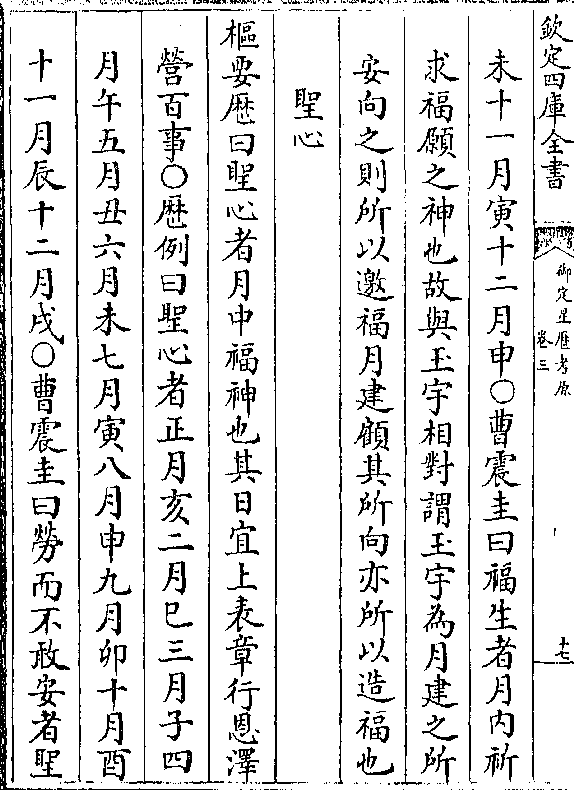 欽定四庫全書
御定星歴考原
卷三
十七
未十一月寅十二月申○曹震圭曰福生者月内祈
求福願之神也故與玉宇相對謂玉宇為月建之所
安向之則所以邀福月建顧其所向亦所以造福也
聖心
樞要歴曰聖心者月中福神也其日宜上表章行恩澤
營百事○歴例曰聖心者正月亥二月巳三月子四
月午五月丑六月未七月寅八月申九月卯十月酉
十一月辰十二月戌○曹震圭曰勞而不敢安者聖